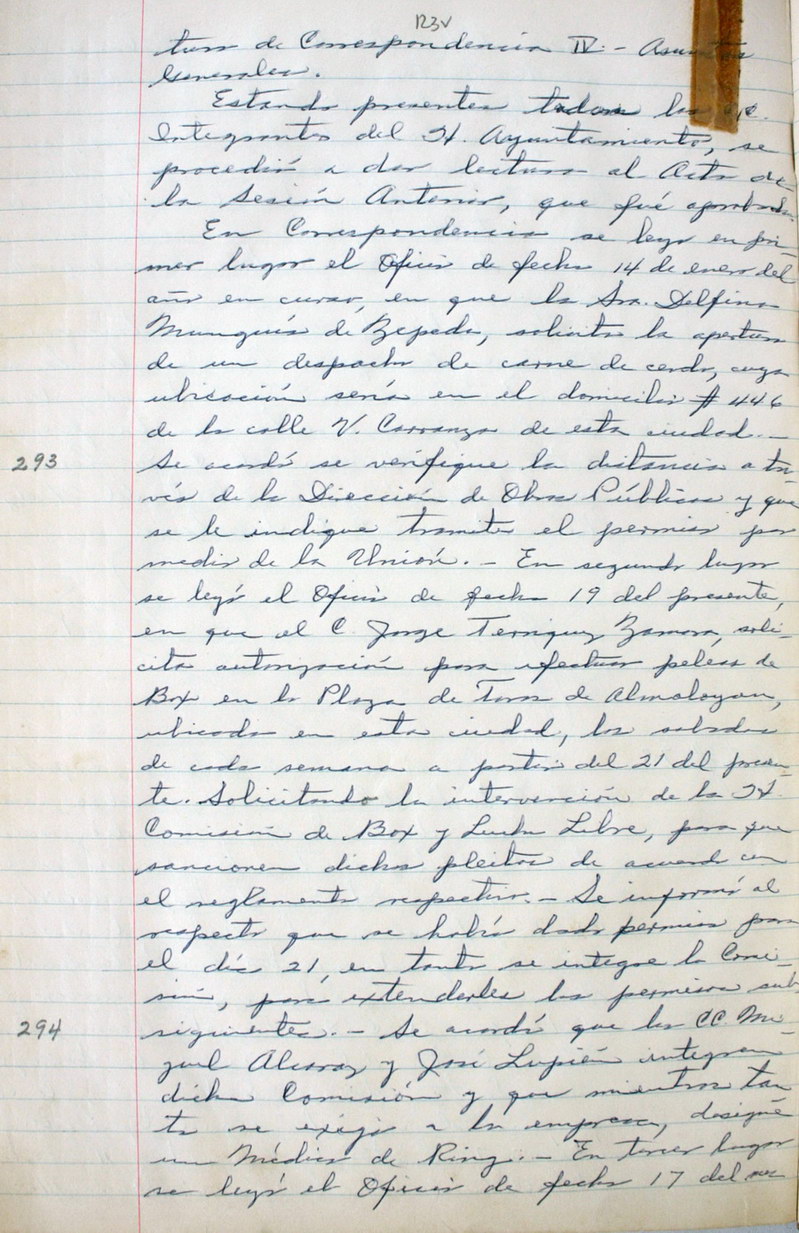 123v
tura de Correspondencia IV.- Asuntos
Generales.
Estando presentes todos los
Integrantes del H. Ayuntamiento, se
procedió a dar lectura al Acta de
la Sesión Anterior, que fué aprobada.
En Correspondencia se leyó en pri-
mer lugar el Oficio de fecha 14 de enero del
año en curso, en que la Sra. Delfina
Munguía de Zepeda, solicita la apertura
de un despacho de carne de cerdo, cuya
ubicación sería en el domicilio # 446
de la calle V. Carranza de esta ciudad.-
293
Se acordó se verifique la distancia a tra-
vés de la Dirección de Obras Públicas y que
se le indique tramite el permiso por
medio de la Unión.- En segundo lugar
se leyó el Oficio de fecha 19 del presente,
en que el C. Jorge Terriquez Zamora, soli-
cita autorización para efectuar peleas de
Box en la Plaza de Toros de Almoloyan,
ubicada en esta ciudad, los sabados
de cada semana a partir del 21 del presen-
te. Solicitando la intervención de la H.
Comisión de Box y Lucha Libre, para que
sancionen dichos pleitos de acuerdo con
el reglamento respectivo.- Se informó al
respecto que se había dado permiso para
el día 21, en tanto se integre la Comi-
sión, para extenderles los permisos sub-
siguientes.-
294
Se acordó que los CC. Mi-
guel Alcaraz y José Lupién integren
dicha Comisión y que mientras tan
to se exija a la empresa, designe
un Médico de Ring.- En tercer lugar
se leyó el Oficio de fecha 17 del mes